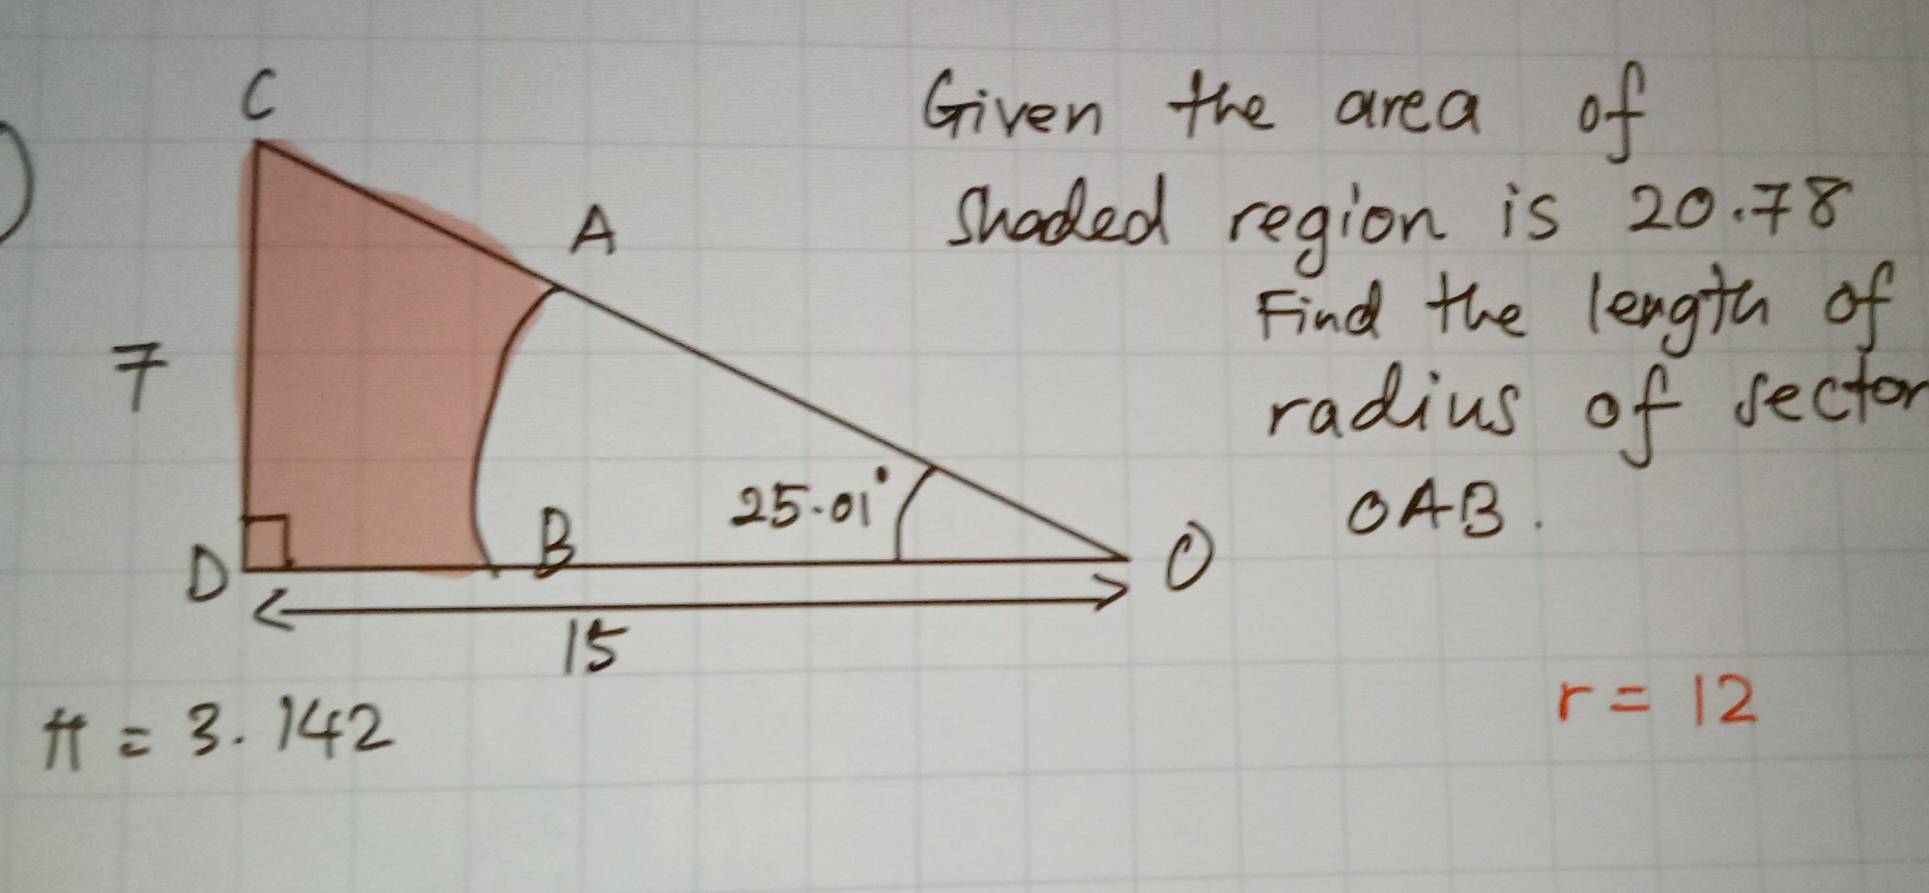 C
Given the area of
A
Shaded region is 20.78
Find the length of
7
radius of sector
25.01°
OAB.
D
B
O
15
r = 12
π = 3.142